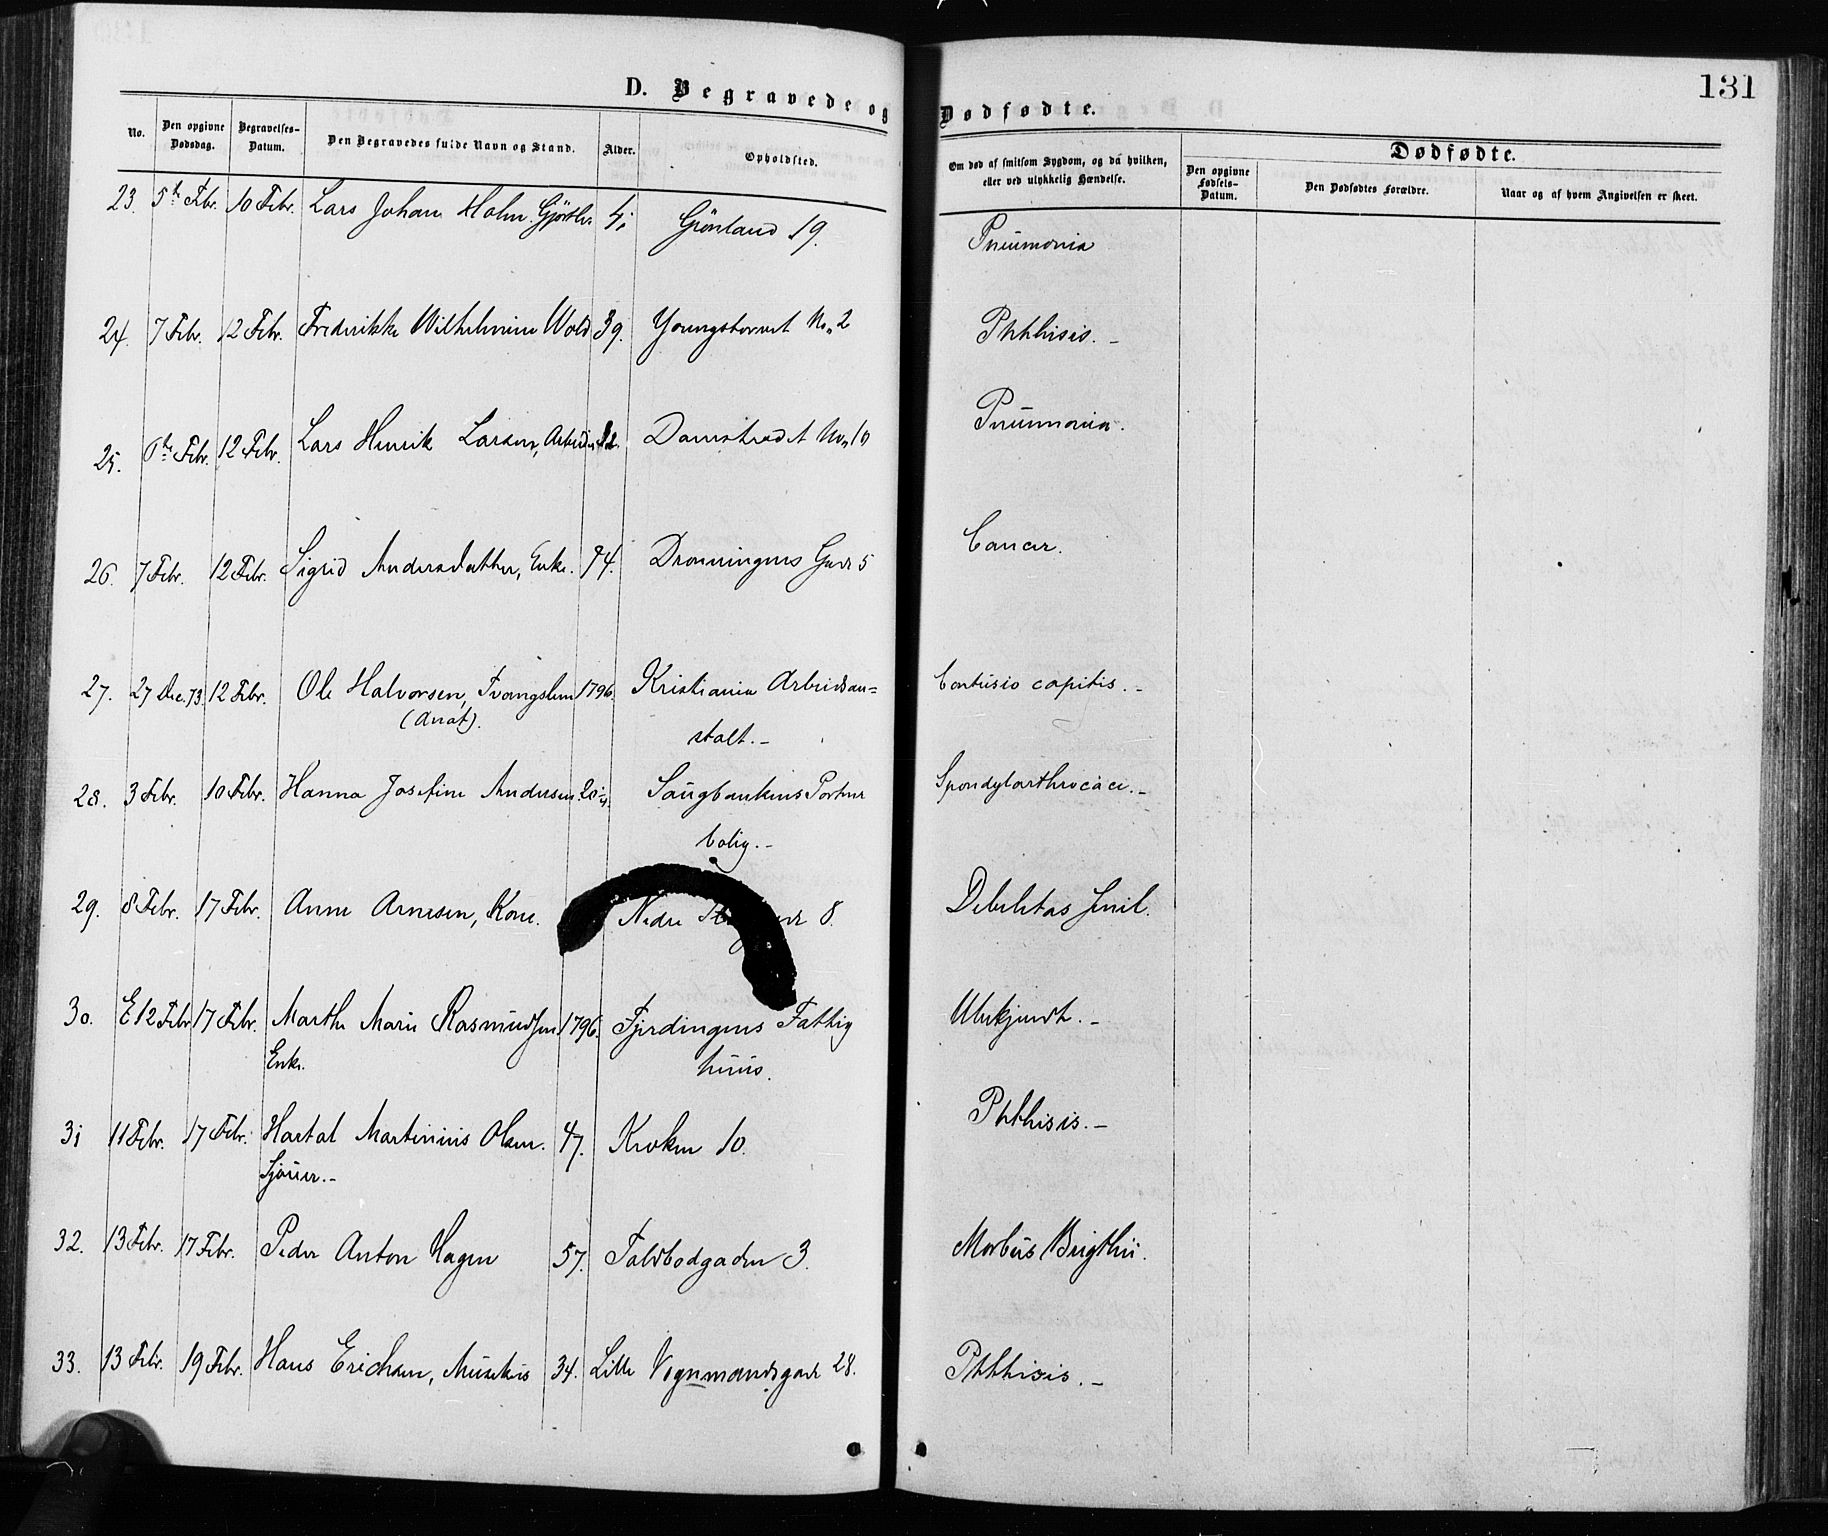 131
D. Begravede og Dødfødte.
No. Den opgivne Dødsdag. Begravelses-Datum. Den Begravedes fulde Navn og Stand. Alder. Opholdsted. Om død af smitsom Sygdom, og da hvilken, eller ved ulykkelig Hændelse.
Dødfødte.
Den opgivne Fødsels-Datum. Den Dødfødtes Forældre. Naar og af hvem Angivelsen er skeet.
23. 5te Febr. 10 Febr. Lars Johan Holm. Grønland 19. Pneumonia
24. 7 Febr. 12 Febr. Frederikke Wilhelmine Wold 39. Youngstorvet No. 2 Phthisis. -
25. 6te Febr. 12 Febr. Lars Henrik Larsen, Arbeider Damstrædet No. 10 Pneumonia.
26. 7 Febr. 12 Febr. Sigrid Andersdatter, Enke. 74. Dronningens Gade 5 Cancer.
27. 27 Dec. 73. 12 Febr. Ole Halvorsen, Tvangslem 1796. Kristiania Arbeidsan= Contusio capitis. -
(Anat). stalt. -
28. 3 Febr. 10 Febr. Hanna Josefine Andersen Saugbankens Portner Spondylarthrocace. -
bolig. -
29. 8 Febr. 17 Febr. Anne Arnesen, Kone. Nedre 8. Debilitas senil.
30. E 12 Febr 17 Febr. Marthe Marie Rasmussen 1796. Fjerdingens Fattig Ubekjendt. -
Enke. huus.
31 11 Febr. 17 Febr. Martinius Olsen. 47. Kroken 10. Phthisis. -
32. 13 Febr. 17 Febr. Peder Anton Hagen 57. Toldbodgaden 3. Morbus Brigthii.
33. 13 Febr. 19 Febr. Hans Erichsen, Musikus 34. Lille Vognmandsgade 28. Phthisis. -